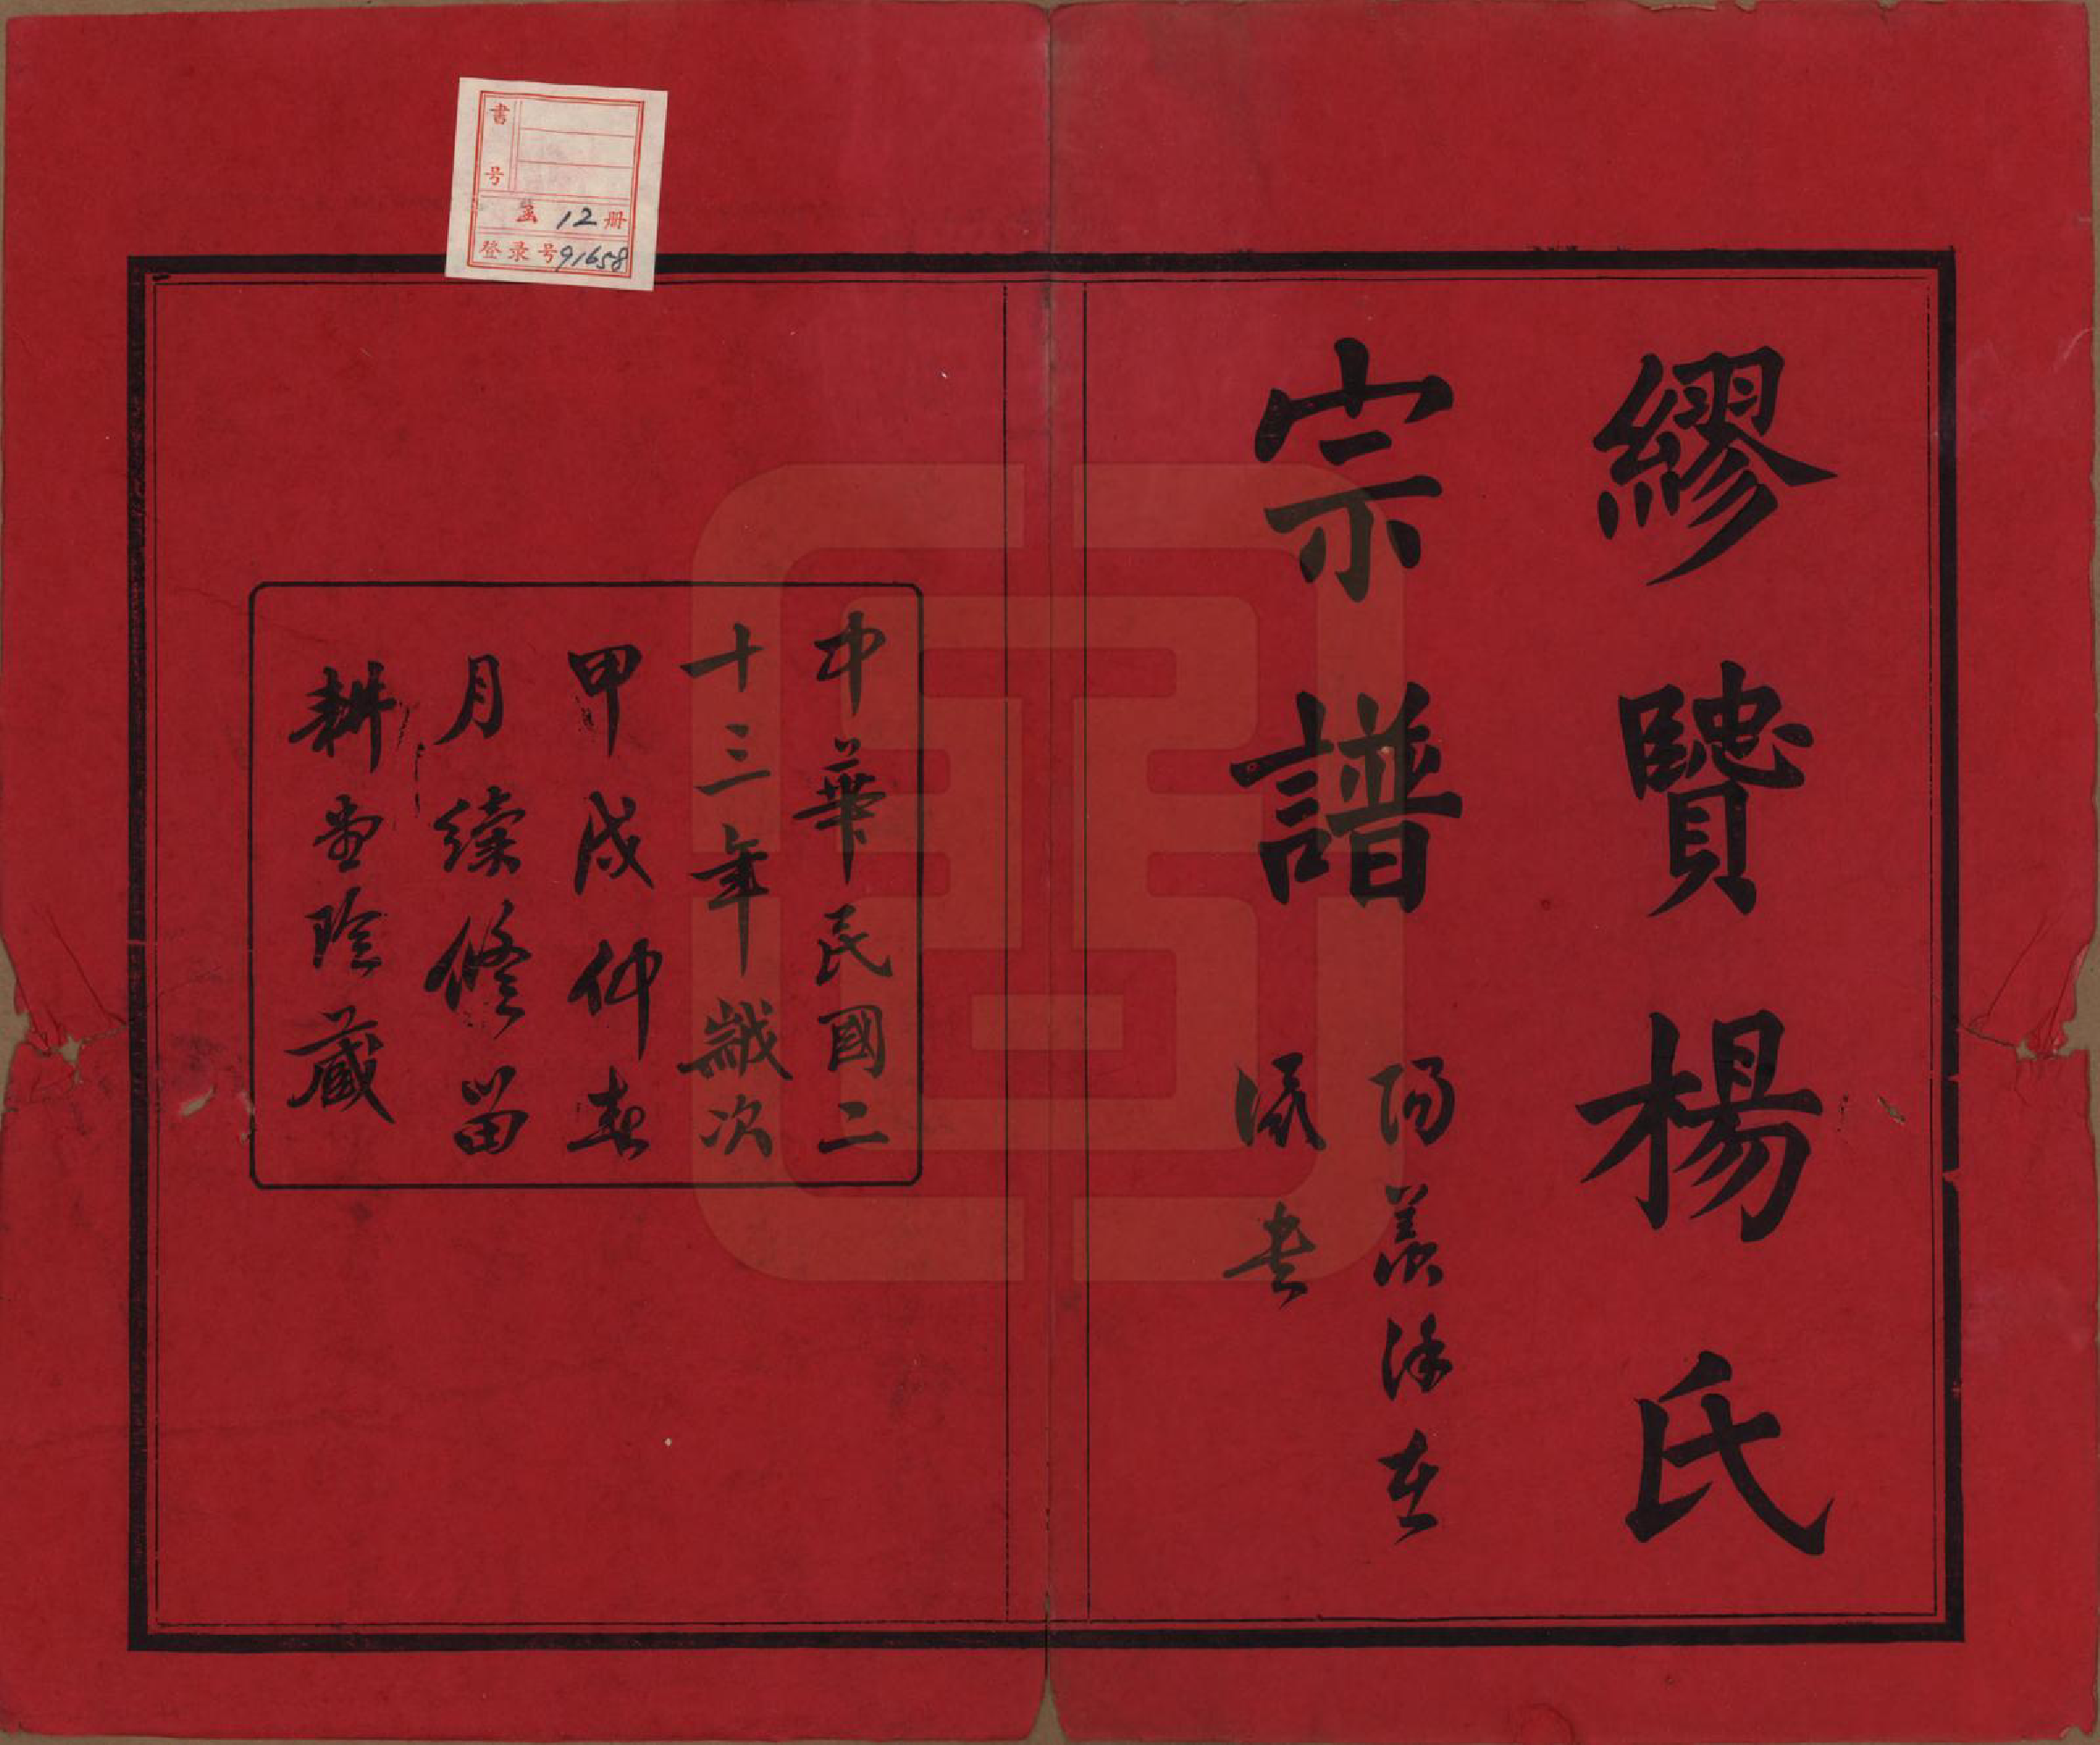 繆贒楊氏
宗譜
陽羨徐在
書
中華民國二
十三年歲次
甲戌仲春
月續修留
耕堂珍藏
書号
函 12 册
登录号 91658